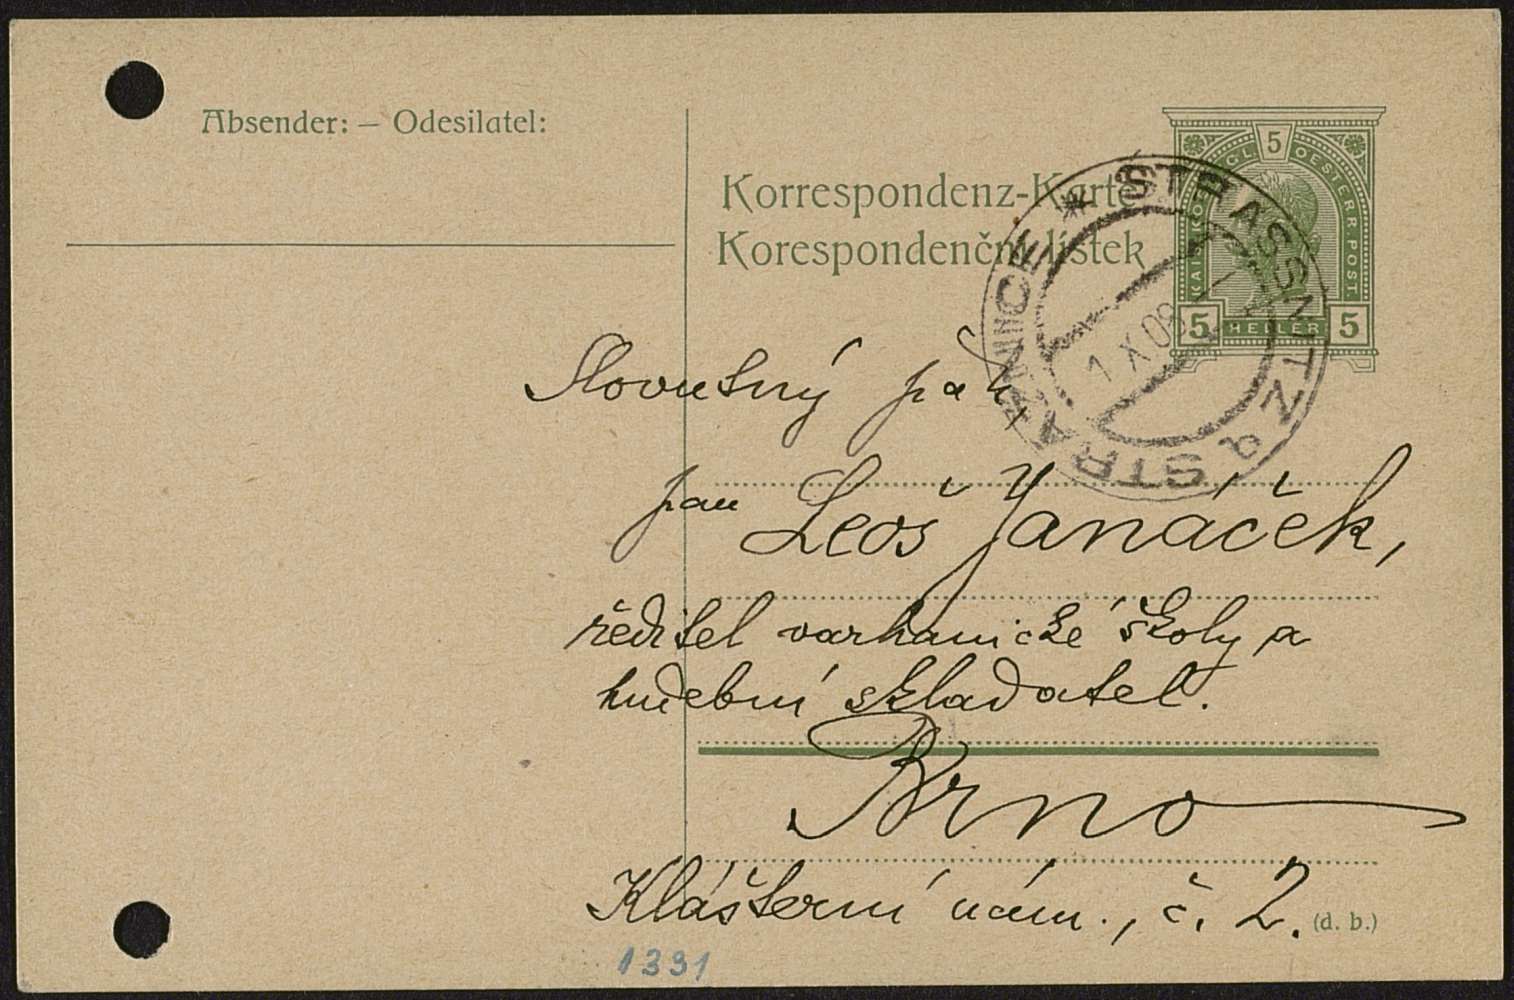 Absender: – Odesilatel:
Korrespondenz-Karte
Korespondenční lístek
KAIS. KÖNIGL. OESTERR. POST.
5
5 HELLER 5
* STRASSNITZ & STRÁŽNICE
1 X 08
Slovutný pan,
pan Leoš Janáček,
ředitel varhanické školy a
hudební skladatel.
Brno
Klášterní nám., č. 2.
(d. b.)
1391